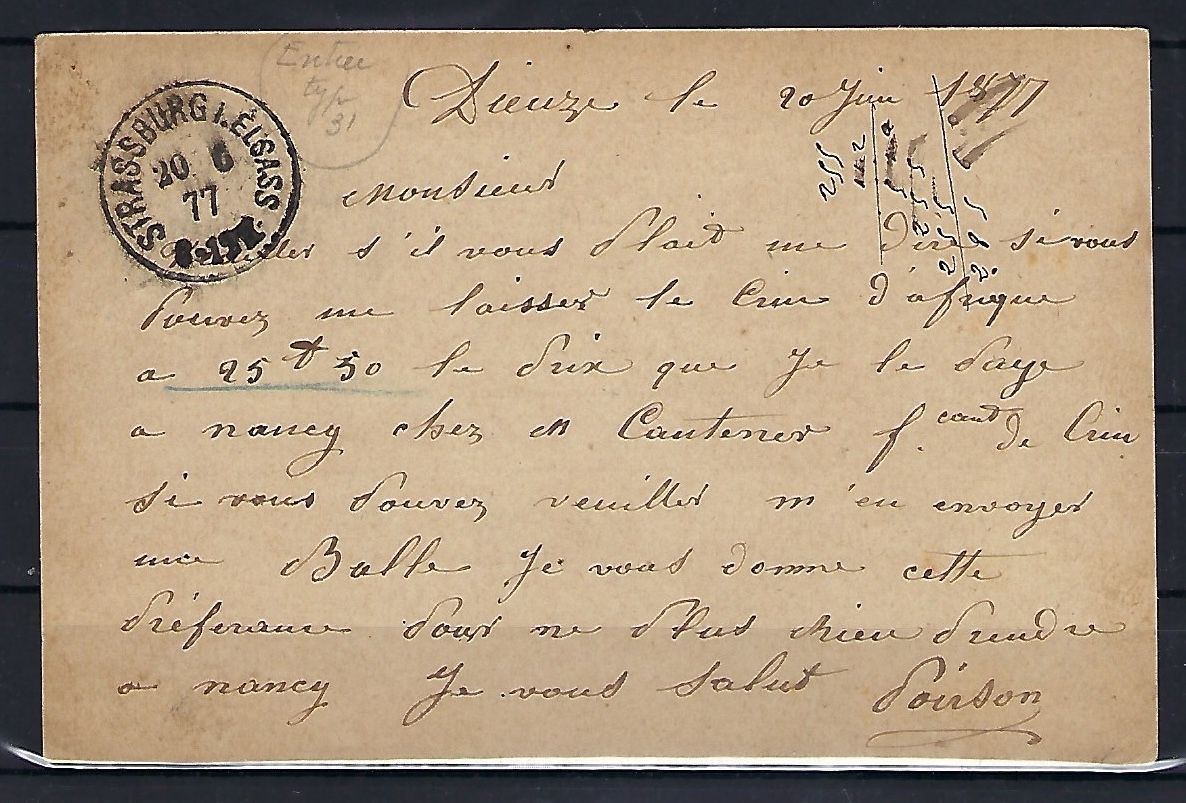 Entier
type
31
Dieuze le 20 Juin 1877
STRASSBURG i. ELSASS
20 6
77
Monsieur
s'il vous Plait me Dire si vous
Pouvez me laisser le Crin d'afrique
a 25 f 50 le Prix que Je le Paye
a nancy chez M Cautener f.cant de Crin
Si vous Pouvez veuiller m'en envoyer
une Balle Je vous donne cette
Préferance Pour ne Plus Rien Prendre
a nancy Je vous Salut Poirson
255